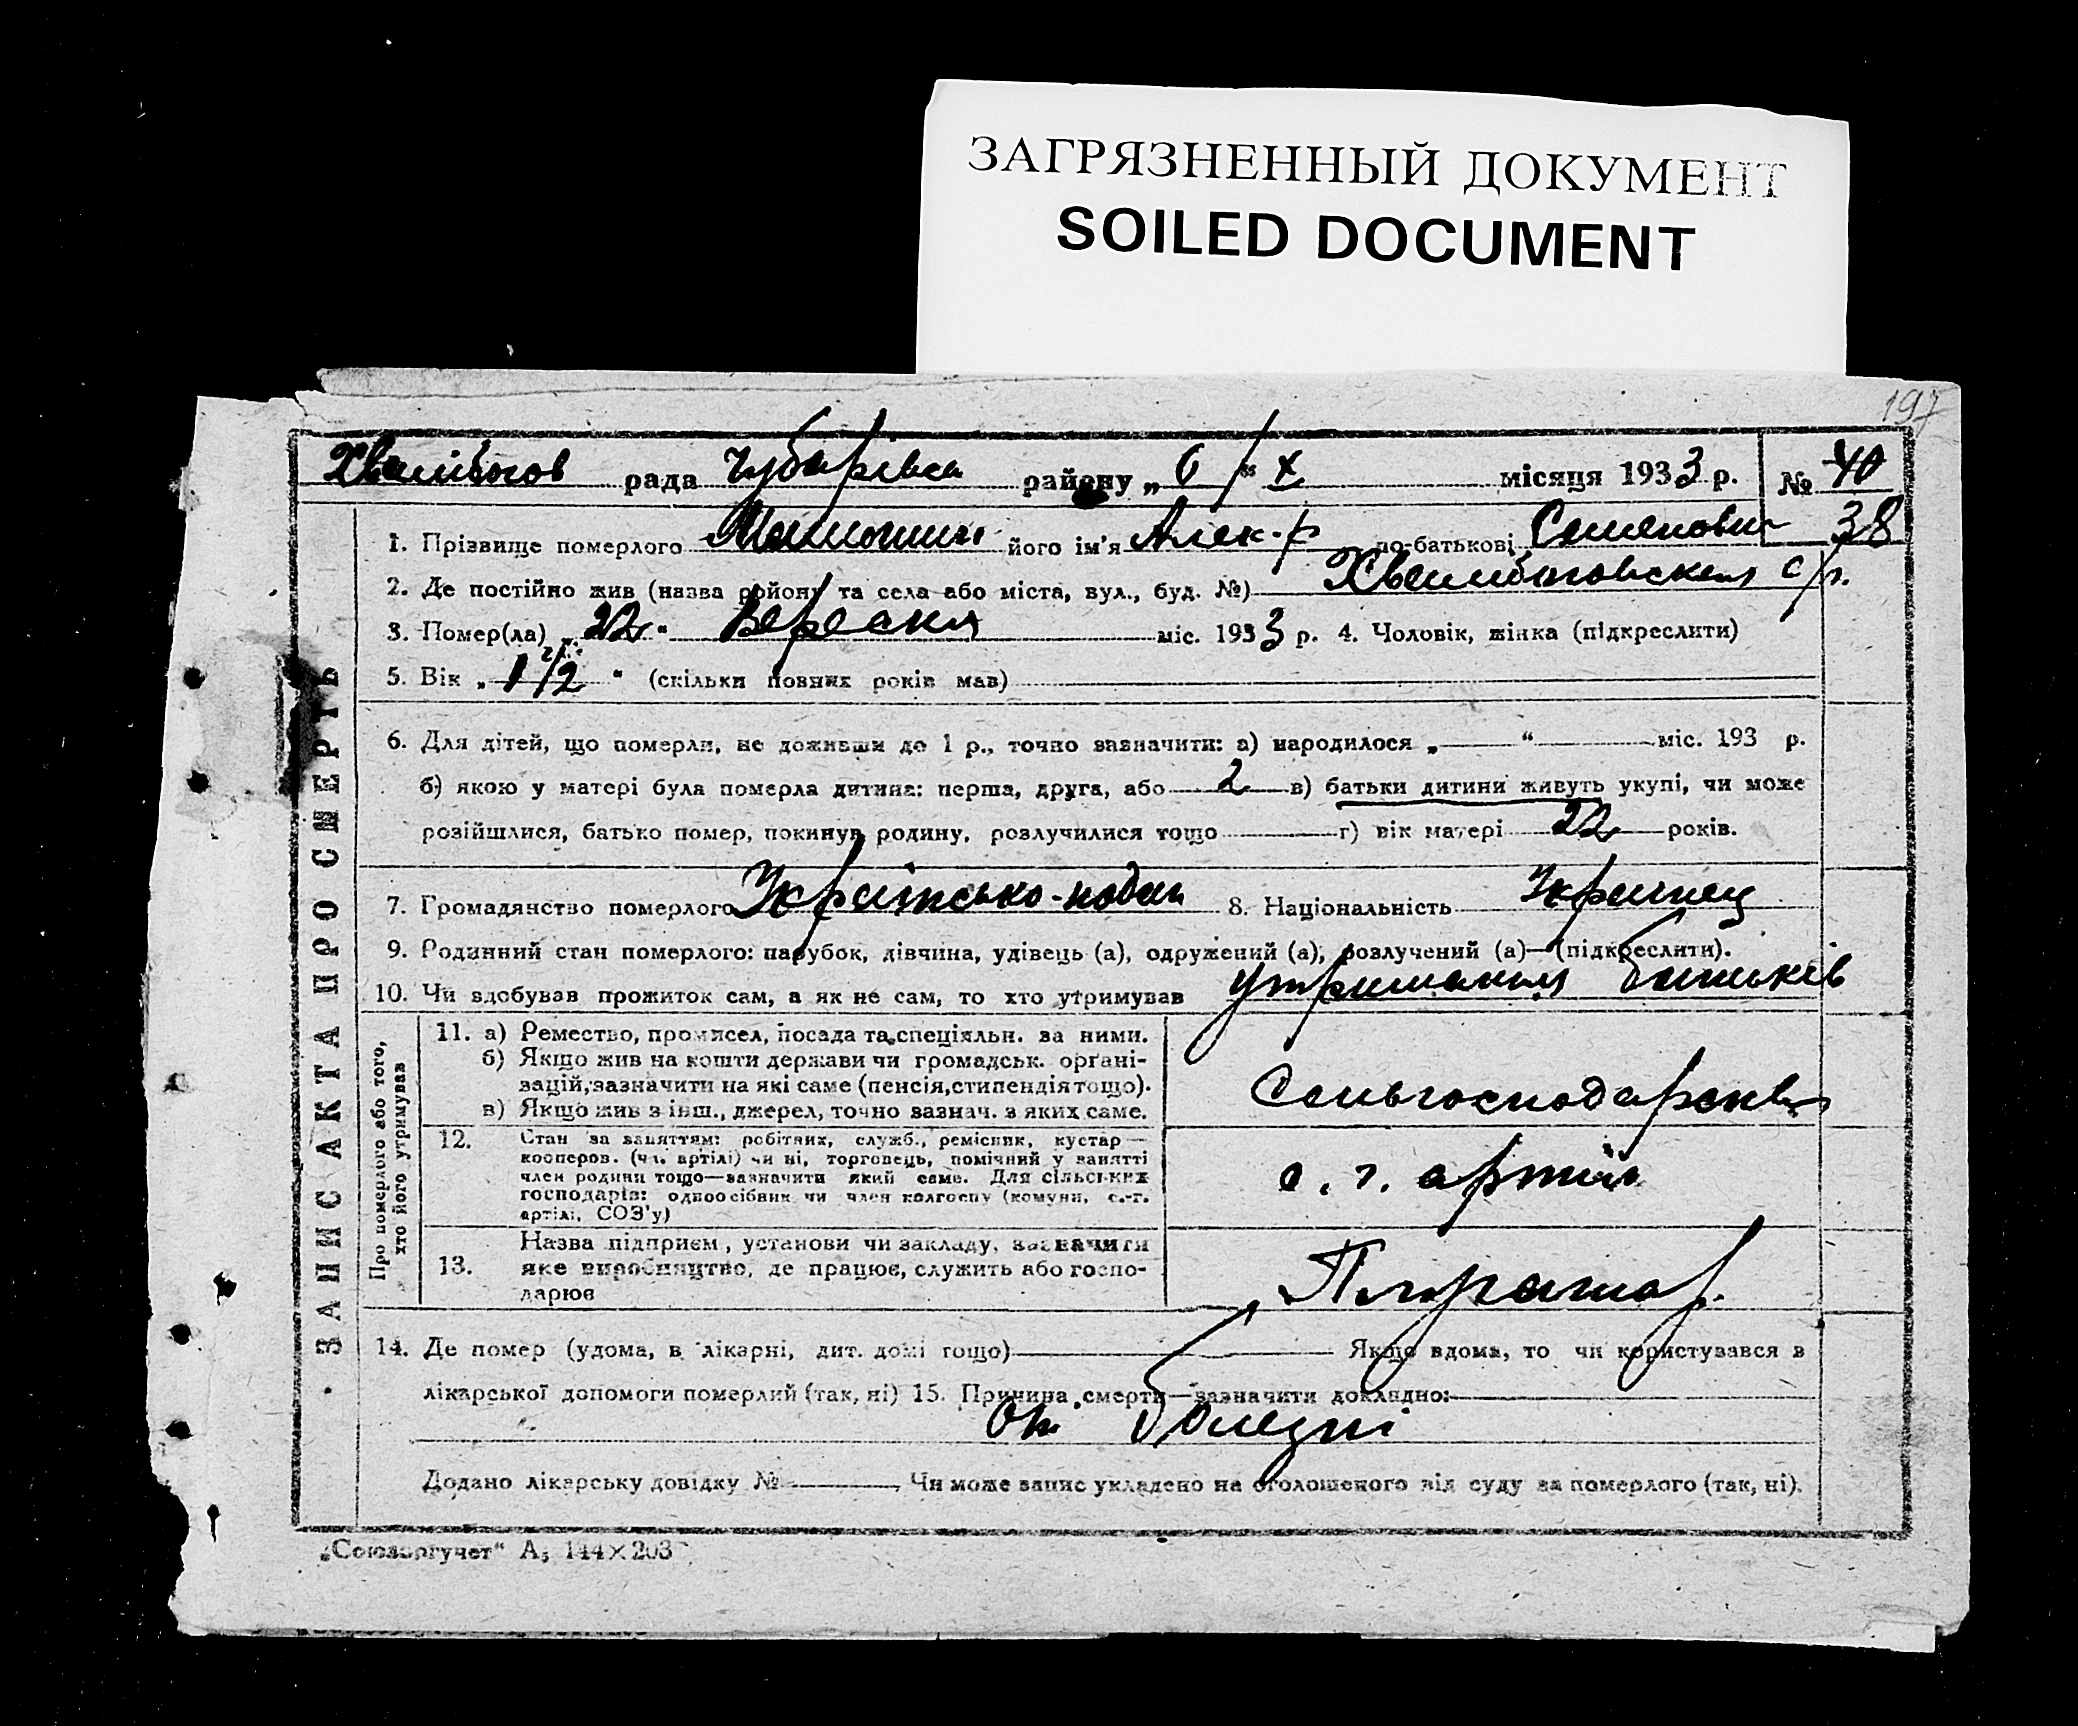 ЗАГРЯЗНЕННЫЙ ДОКУМЕНТ
SOILED DOCUMENT
197
Хвалибогов рада Чубарівка району „ 6 “ X місяця 1933 р. № 40
38
1. Прізвище померлого його ім’я Алек-р по-батькові Семенович
2. Де постійно жив (назва району та села або міста, вул., буд. №) Хвалибоговская с/р.
3. Помер(ла) „ 22 “ Вересня міс. 1933 р. 4. Чоловік, жінка (підкреслити)
5. Вік „ 1 1/2 “ (скільки повних років мав)
6. Для дітей, що померли, не доживши до 1 р., точно зазначити: а) народилося „ “ міс. 193 р.
б) якою у матері була померла дитина: перша, друга, або 2 в) батьки дитини живуть укупі, чи може
розійшлися, батько помер, покинув родину, розлучилися тощо г) вік матері 22 років.
7. Громадянство померлого 8. Національність Украинец
9. Родинний стан померлого: парубок, дівчина, удівець (а), одружений (а), розлучений (а)—(підкреслити).
10. Чи здобував прожиток сам, а як не сам, то хто утримував утримання батьків
ЗАПИС АКТА ПРО СМЕРТЬ
Про померлого або того,
хто його утримував
11. а) Ремество, промисел, посада та спеціяльн. за ними.
б) Якщо жив на кошти держави чи громадськ. орґані-
зацій, зазначити на які саме (пенсія, стипендія тощо).
в) Якщо жив з інш., джерел, точно зазнач. з яких саме.
12. Стан за заняттям: робітник, служб., ремісник, кустар —
кооперов. (чл. артілі) чи ні, торговець, помічний у занятті
член родини тощо—зазначити який саме. Для сільських
господарів: одноосібник чи член колгоспу (комуни, с.-г.
артілі, СОЗ’у)
с. г. артіль
13. Назва підприєм., установи чи закладу, зазначити
яке виробництво, де працює, служить або госпо-
дарює
14. Де помер (удома, в лікарні, дит. домі тощо) Якщо вдома, то чи користувався в
лікарської допомоги померлий (так, ні) 15. Причина смерти—зазначити докладно:
От болезні
Додано лікарську довідку № , Чи може запис укладено на оголошеного від суду за померлого (так, ні).
„Союзоргучет“ А5 144×203